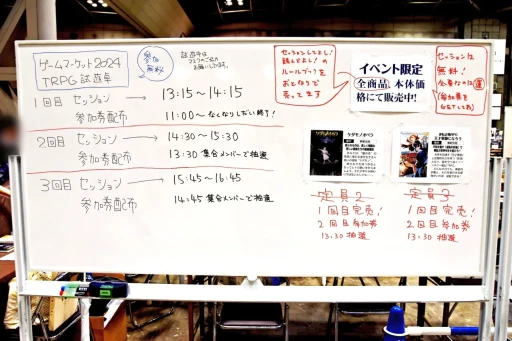 ゲームマーケット2024
TRPG 試遊卓
参加
無料
試遊卓は
マスクのご着用
お願いします。
1回目 セッション → 13:15～14:15
参加券配布 → 11:00～なくなりしだい終了!
2回目 セッション → 14:30～15:30
参加券配布 → 13:30 集合メンバーで抽選
3回目 セッション → 15:45～16:45
参加券配布 → 14:45 集合メンバーで抽選
セッションしてよし!
読んでよし!の
ルールブックを
おとなりで
売ってます
イベント限定
全商品、本体価
格にて販売中!
セッションは
無料!
必要なのは運
(参加券を
GETしてね)
ケダモノオペラ
定員2
1回目完売!
2回目参加券
13:30 抽選
定員3
1回目完売!
2回目参加券
13:30 抽選